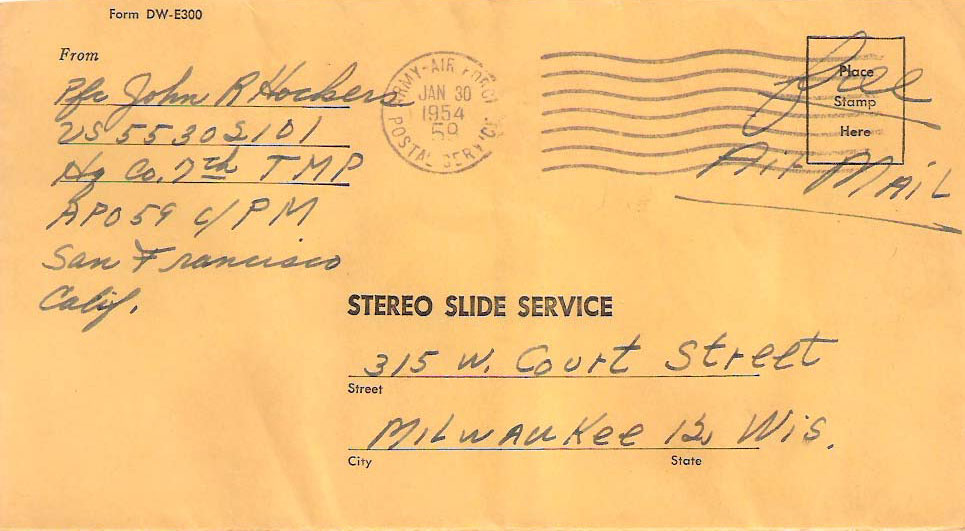 Form DW-E300
From
Pfc John R Hockers
US 55302101
Hq Co. 7th TMP
APO 59 c/PM
San Francisco
Calif.
ARMY-AIR FORCE
JAN 30
1954
59
POSTAL SERVICE
Free
Place
Stamp
Here
Air Mail
STEREO SLIDE SERVICE
315 W. Court Street
Street
Milwaukee 12, Wis.
City State